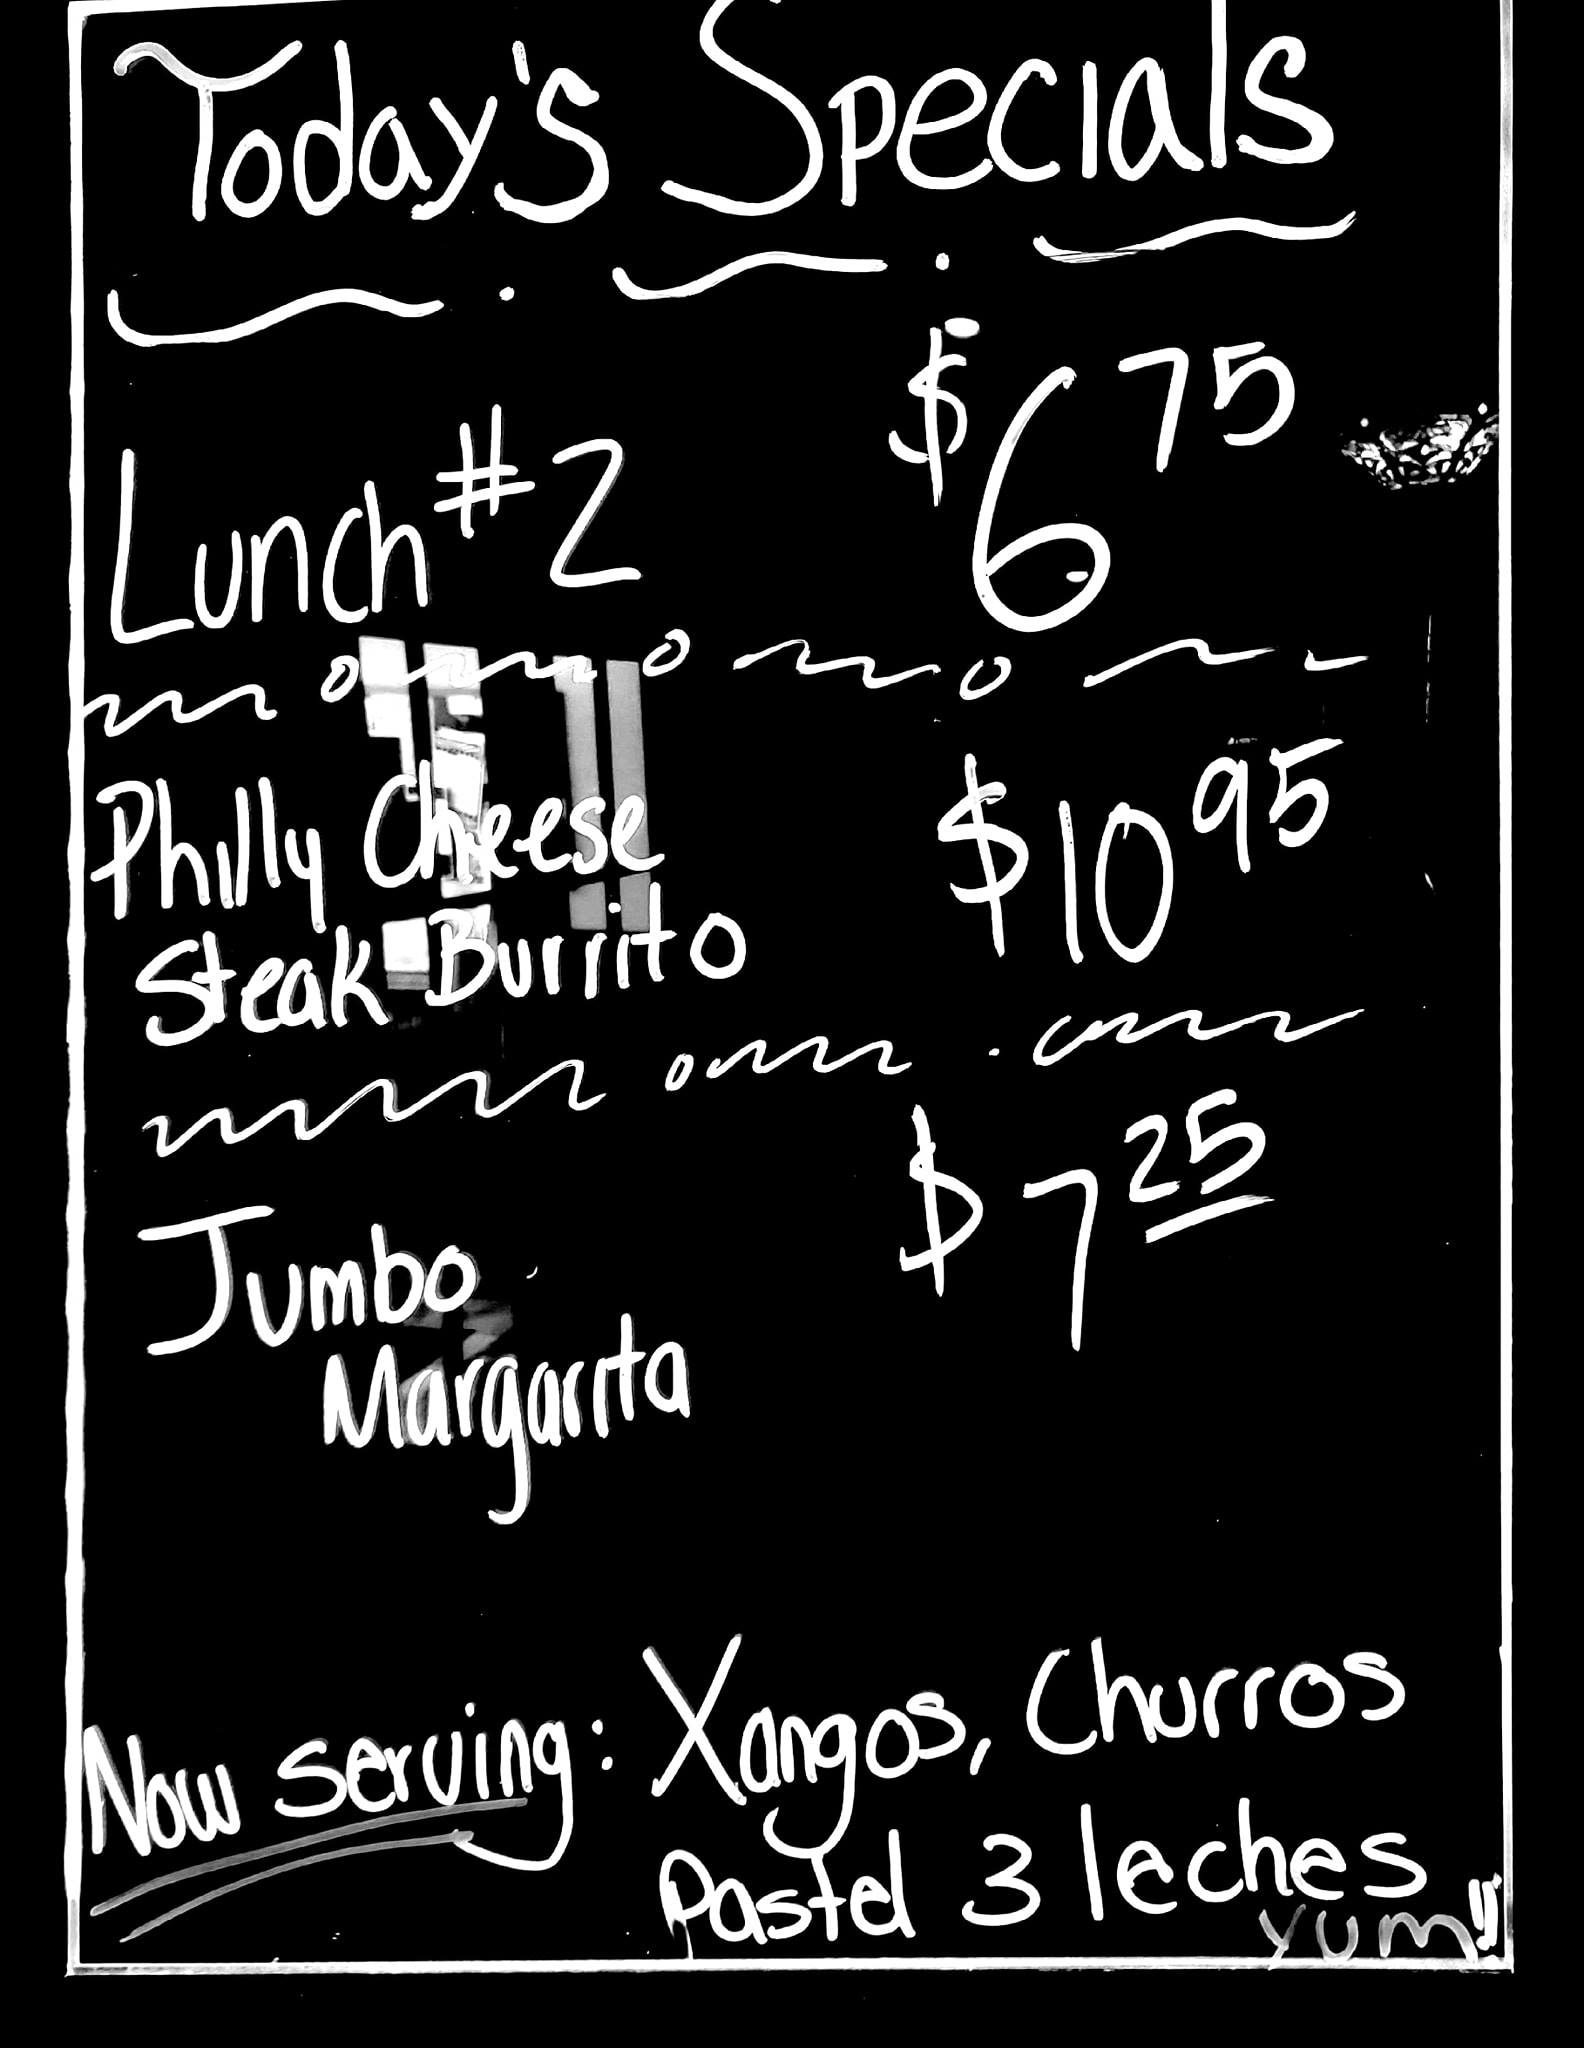 Today's Specials
Lunch #2 $6 75
Philly Cheese $10 95
Steak Burrito
Jumbo $7 25
Margarita
Now serving: Xangos, Churros
Pastel 3 leches
YUM!!